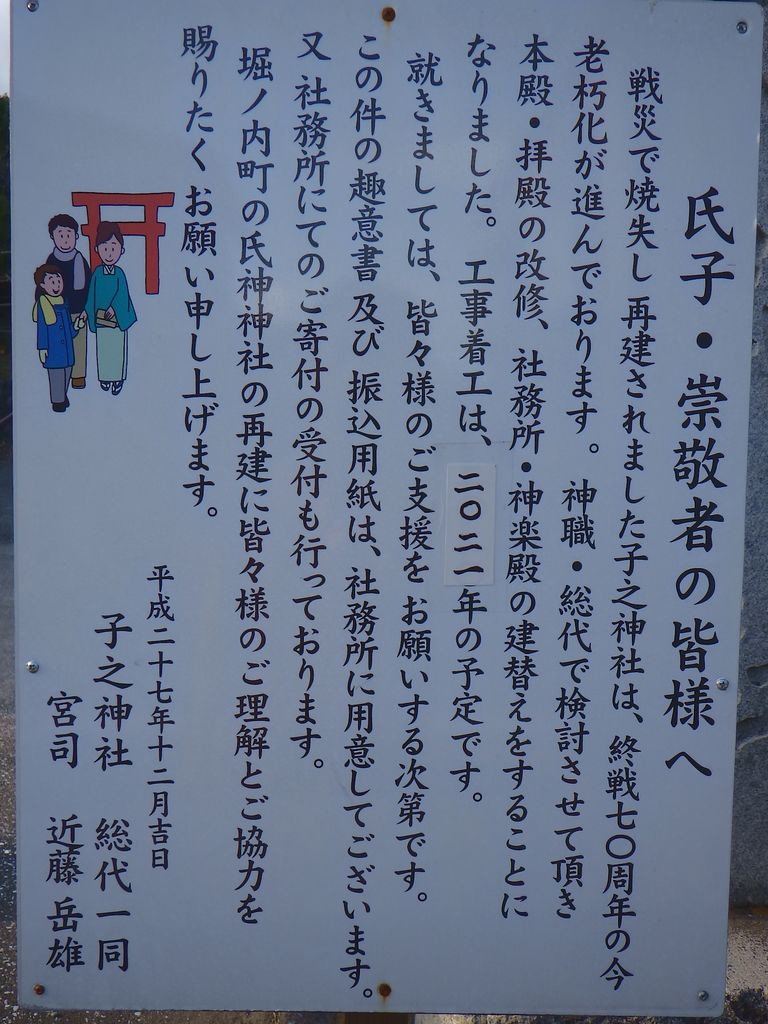 氏子・崇敬者の皆様へ
戦災で焼失し 再建されました子之神社は、終戦七〇周年の今
老朽化が進んでおります。 神職・総代で検討させて頂き
本殿・拝殿の改修、社務所・神楽殿の建替えをすることに
なりました。 工事着工は、二〇二一年の予定です。
就きましては、皆々様のご支援を お願いする次第です。
この件の趣意書 及び 振込用紙は、社務所に用意してございます。
又 社務所にてのご寄付の受付も行っております。
堀ノ内町の氏神神社の再建に皆々様のご理解とご協力を
賜りたく お願い申し上げます。
平成二十七年十二月吉日
子之神社 総代一同
宮司 近藤 岳雄